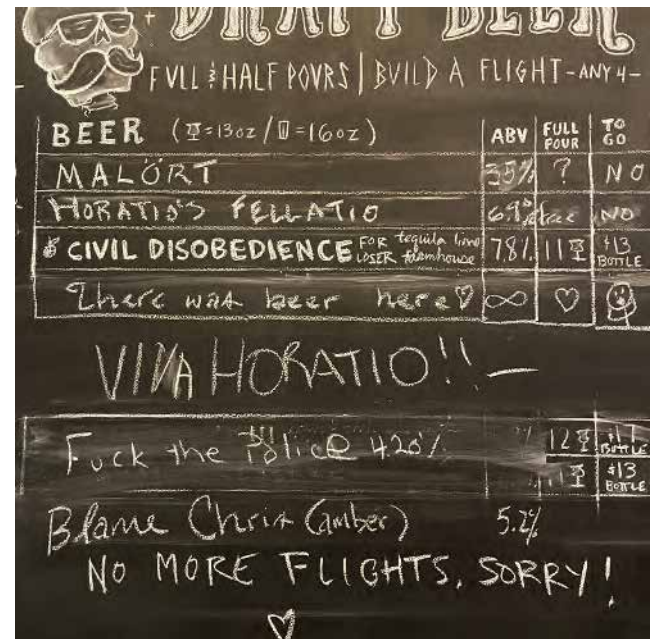 DRAFT BEER
FULL & HALF POURS | BUILD A FLIGHT -ANY 4-
BEER ( =13oz / =16oz) ABV FULL POUR TO GO
MALÖRT 35% ? NO
HORATIO'S FELLATIO 69% free NO
CIVIL DISOBEDIENCE FOR tequila lime LOSER farmhouse 7.8% 11 $13 BOTTLE
There was beer here ♡ ∞ ♡
VIVA HORATIO!! —
Fuck the Police 420% % 12 BOTTLE
11 $13 BOTTLE
Blame Chris (amber) 5.2%
NO MORE FLIGHTS, SORRY!
♡